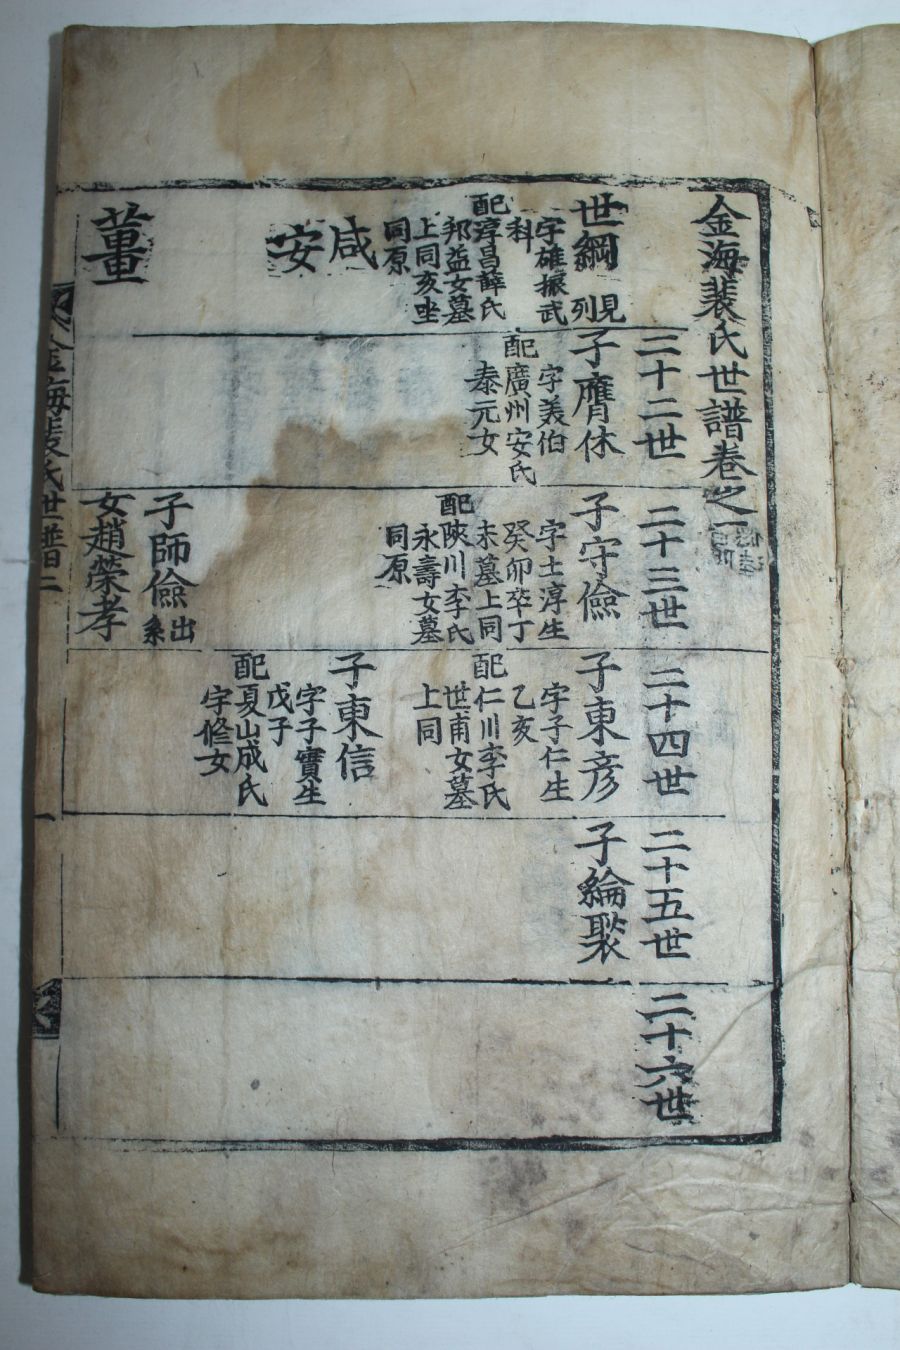 金海裴氏世譜卷之一
世綱見列
字雄振武
科
配淳昌薛氏
邦益女墓
上同亥坐
同原
咸
安
董
二十二世
子膺休
字美伯
配廣州安氏
泰元女
二十三世
子守儉
字士淳生
癸卯卒丁
未墓上同
配陜川李氏
永壽女墓
同原
子師儉出系
女趙榮孝
二十四世
子東彦
字子仁生
乙亥
配仁川李氏
世甫女墓
上同
子東信
字子實生
戊子
配夏山成氏
字修女
二十五世
子綸褧
二十六世
金海裴氏世譜二
一